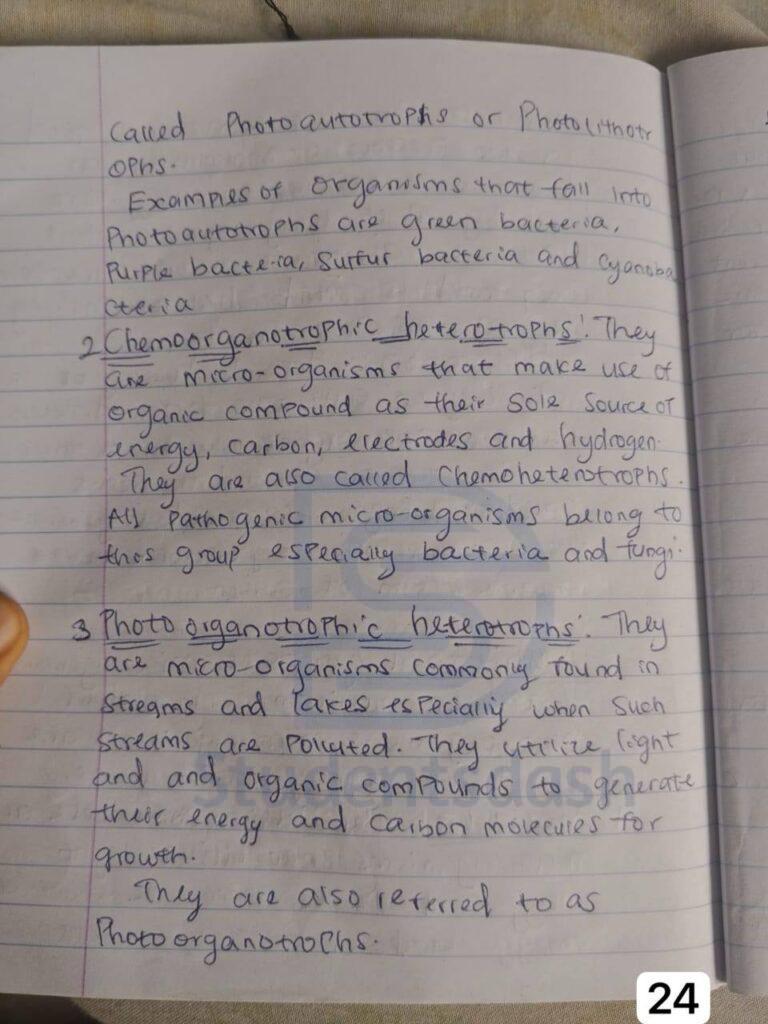 Called Photoautotrophs or Photolithotr
ophs.
Examples of organisms that fall into
Photoautotrophs are green bacteria,
Purple bacteria, Surfur bacteria and cyanoba
cteria
2 Chemoorganotrophic heterotrophs: They
are micro-organisms that make use of
organic compound as their sole source of
energy, carbon, electrodes and hydrogen.
They are also called Chemoheterotrophs.
All pathogenic micro-organisms belong to
this group especially bacteria and fungi.
3 Photo organotrophic heterotrophs: They
are micro-organisms commonly found in
streams and lakes especially when such
streams are polluted. They utilize light
and and organic compounds to generate
their energy and carbon molecules for
growth.
They are also referred to as
Photoorganotrophs.
Studentsdash
24